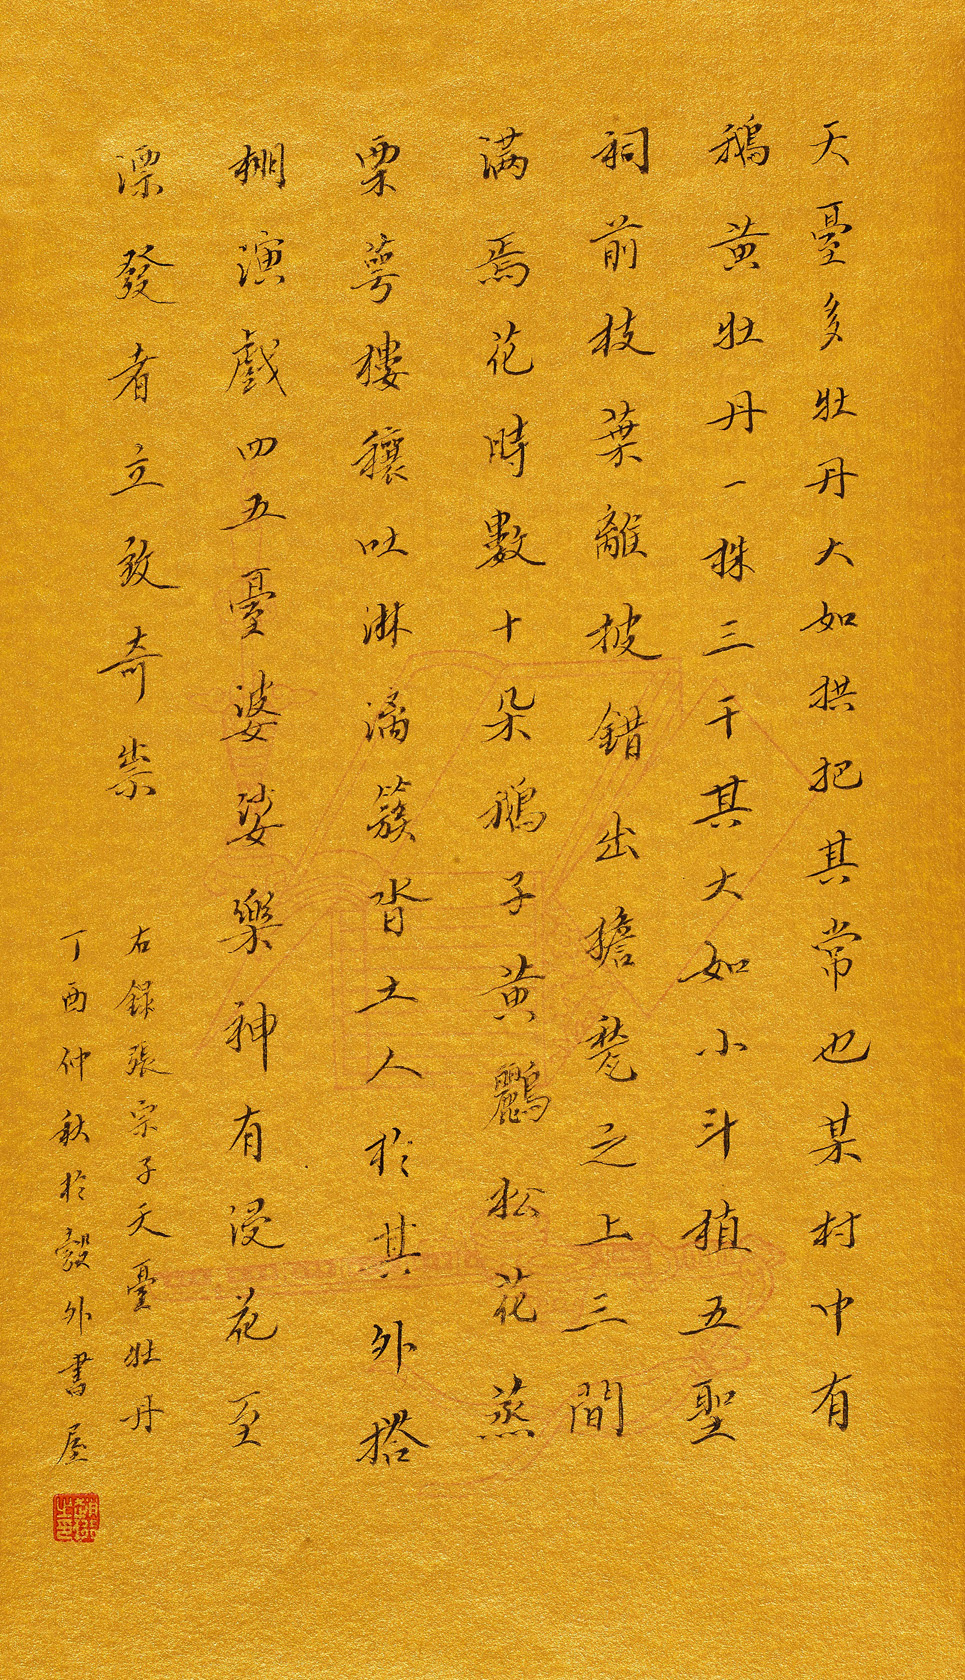 天臺多牡丹大如拱把其常也某村中有
鵝黃牡丹一株三干其大如小斗植五聖
祠前枝葉離披錯出檐甃之上三間
满焉花時數十朵鵝子黃鸝松花蒸
栗萼樓穰吐淋漓簇沓土人於其外搭
棚演戲四五臺婆娑樂神有侵花至
漂發者立致奇祟
右錄張宗子天臺牡丹
丁酉仲秋於㝅外書屋